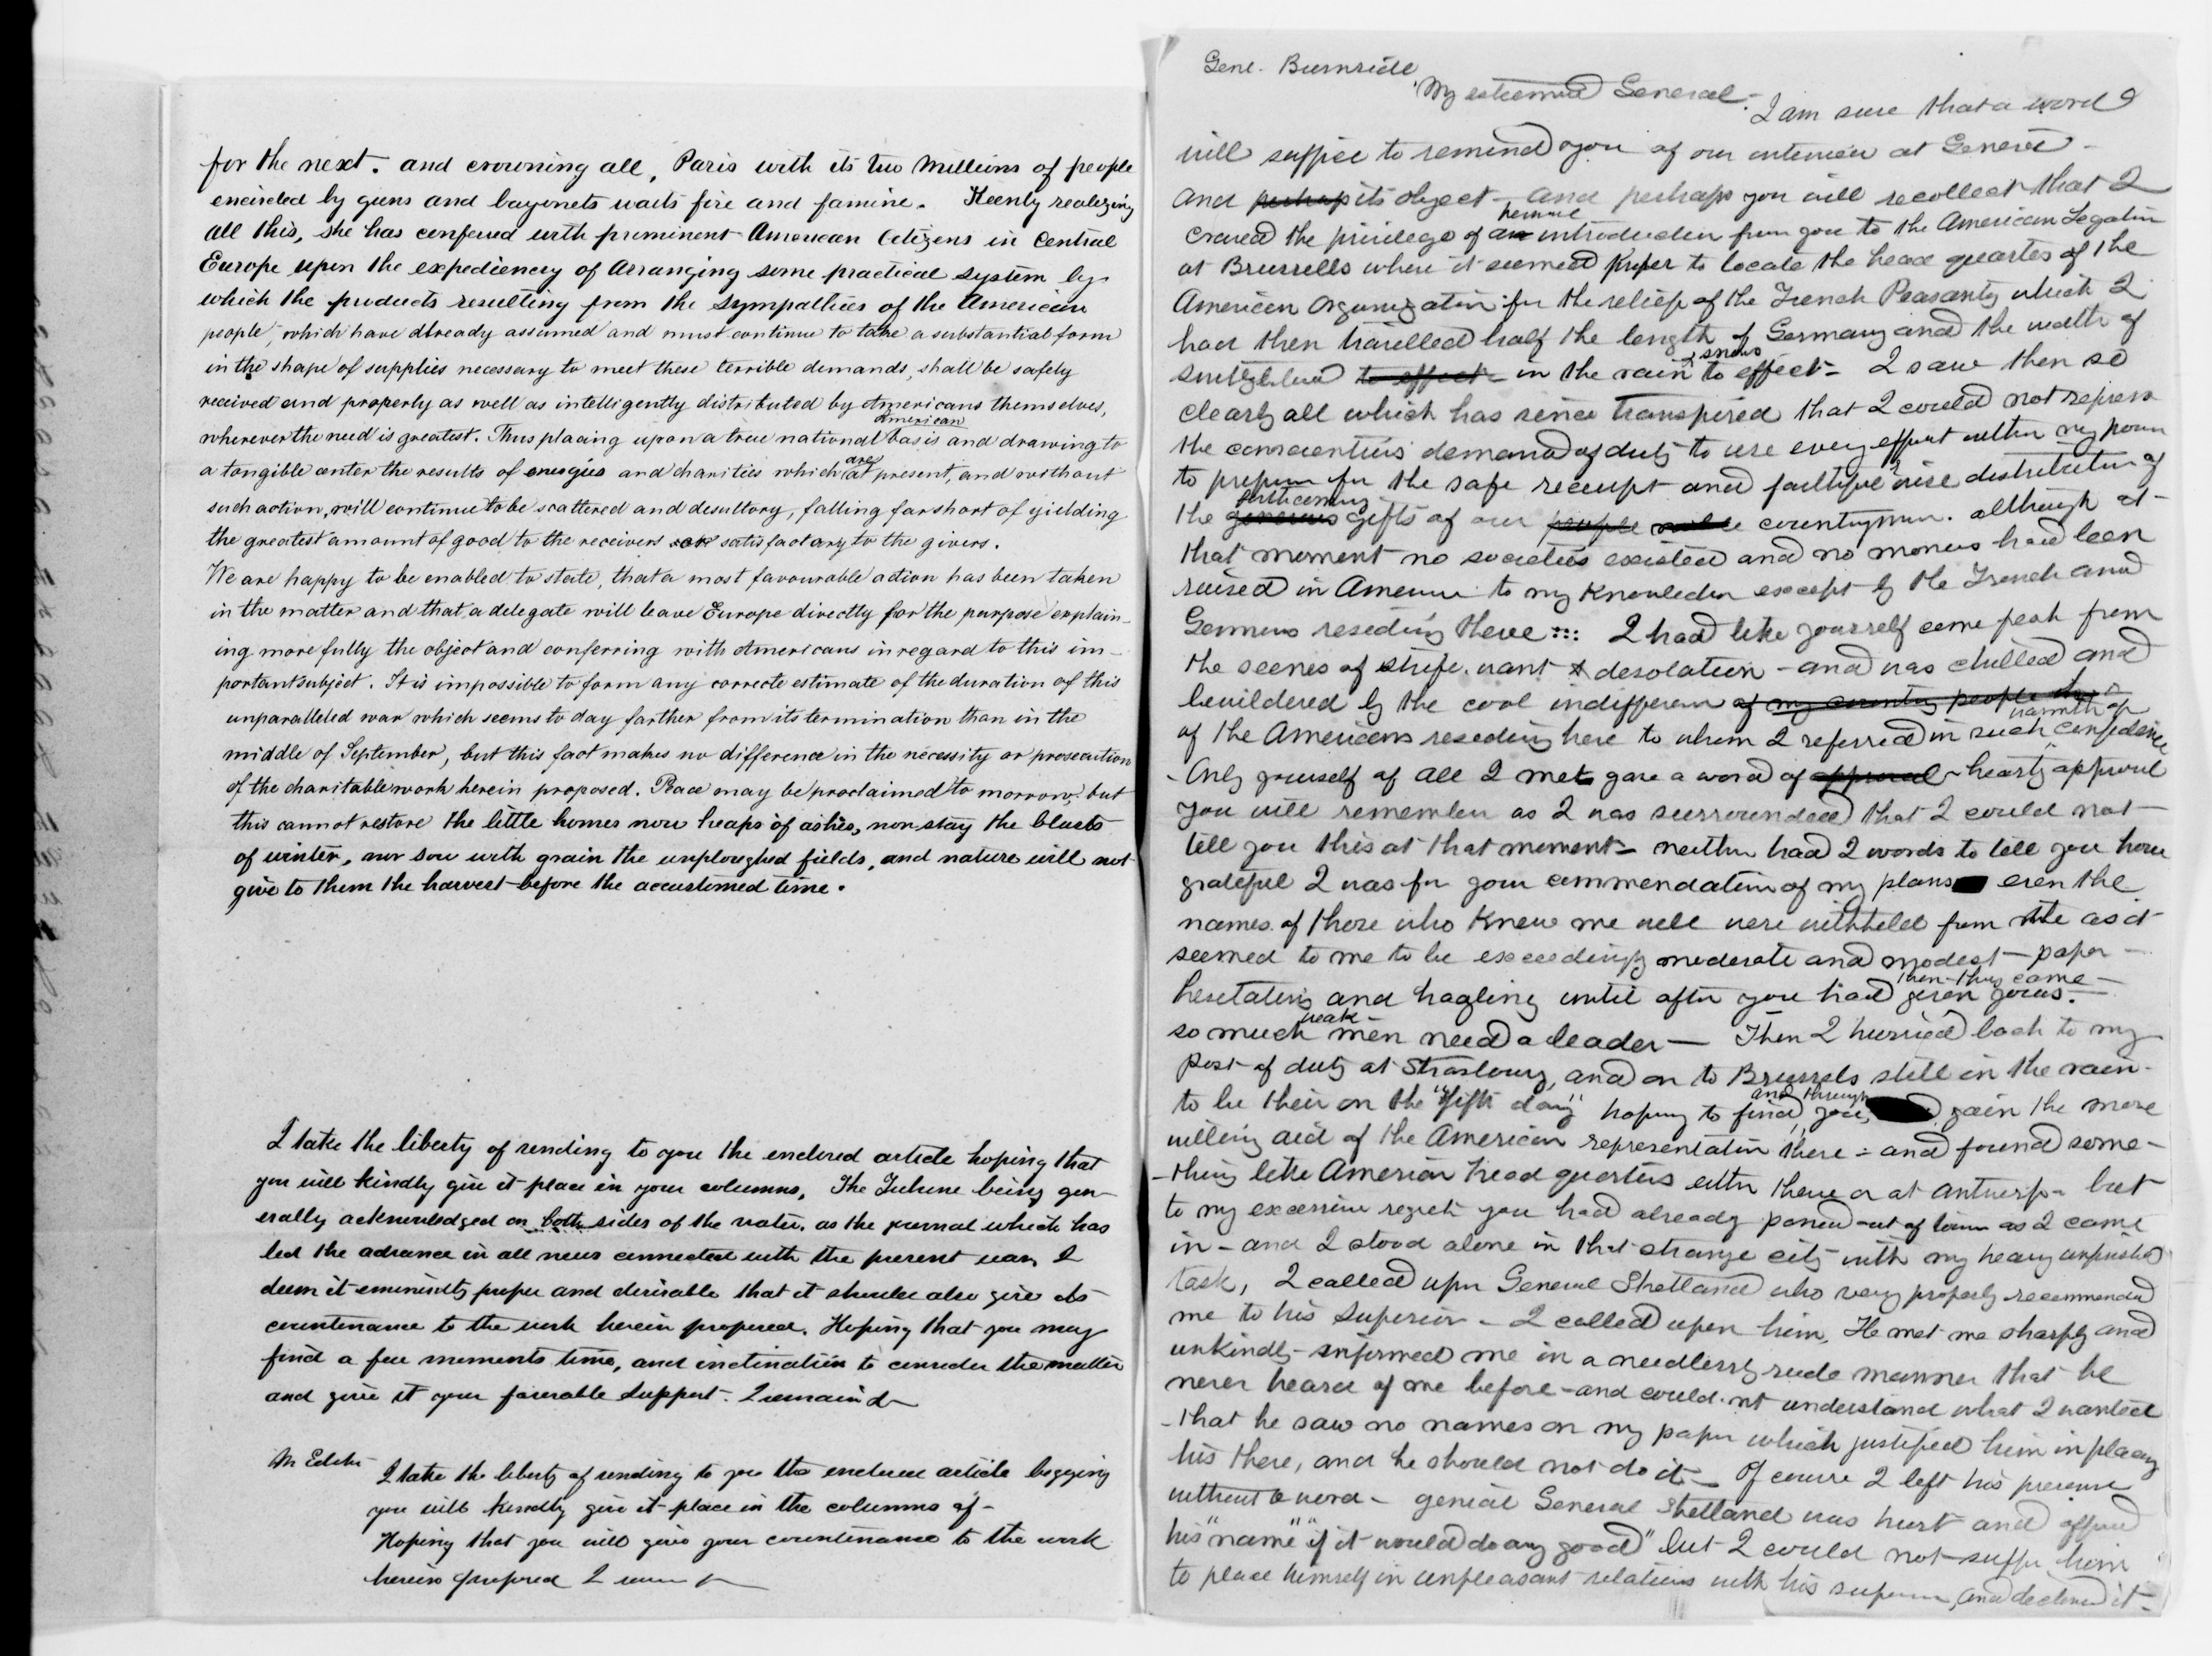 for the next. and crowning all, Paris with its two Millions of people
encircled by guns and bayonets waits fire and famine. Keenly realizing
all this, she has conferred with prominent American Citizens in Central
Europe upon the expediency of Arranging some practical system by
which the products resulting from the sympathies of the American
people, which have already assumed and must continue to take a substantial form
in the shape of supplies necessary to meet these terrible demands, shall be safely
received and properly as well as intelligently distributed by Americans themselves,
American
wherever the need is greatest. Thus placing upon a true national basis and drawing to
are
a tangible center the results of energies and charities which at present, and without
such action, will continue to be scattered and desultory, falling far short of yielding
the greatest amount of good to the receivers or satisfactory to the givers.
We are happy to be enabled to state, that a most favourable action has been taken
in the matter and that a delegate will leave Europe directly for the purpose explain-
ing more fully the object and conferring with Americans in regard to this im-
portant subject. It is impossible to form any correcte estimate of the duration of this
unparalleled war which seems to day farther from its termination than in the
middle of September, but this fact makes no difference in the necessity or prosecution
of the charitable work herein proposed. Peace may be proclaimed to morrow, but
this cannot restore the little homes now heaps of ashes, nor stay the blasts
of winter, nor sow with grain the unploughed fields, and nature will not
give to them the harvest before the accustomed time.
I take the liberty of sending to you the enclosed article hoping that
you will kindly give it place in your columns, The Tribune being gen-
erally acknowledged on both sides of the water, as the journal which has
led the advance in all news connected with the present war, I
deem it eminently proper and desirable that it should also give its
countenance to the work herein proposed. Hoping that you may
find a few moments time, and inclination to consider the matter
and give it your favorable support. I remain &
Mr Editor
I take the liberty of sending to you the enclosed article begging
you will kindly give it place in the columns of -
Hoping that you will give your countenance to the work
herein proposed I remain
Genl. Burnside
My esteemed General.
I am sure that a word
will suffice to remind you of our interview at Geneva -
and perhaps its object - and perhaps you will recollect that I
craved the privilege of an introduction from you to the American Legation
at Brussells where it seemed proper to locate the head quarters of the
American Organization for the relief of the French Peasantry which I
had then travelled half the length of Germany and the width of
& snow
Switzerland to effect - in the rain to effect - I saw then so
clearly all which has since transpired that I could not repress
the conscientious demand of duty to use every effort within my power
to prepare for the safe receipt and faithful wise distribution of
forthcoming
the generous gifts of our people countrymen. although at
that moment no societies existed and no moneys had been
raised in America to my knowledge except by the French and
Germans residing there::: I had like yourself come fresh from
the scenes of strife, want & desolation - and was chilled and
bewildered by the cool indifference of my country people
warmth of
of the Americans residing here to whom I referred in such confidence
- Only yourself of all I met gave a word of approval - hearty approval
you will remember as I was surrounded that I could not
tell you this at that moment - neither had I words to tell you how
grateful I was for your commendation of my plans even the
names of those who knew me well were withheld from the as it
seemed to me to be exceedingly moderate and modest - paper -
then they came -
hesitating and hagling until after you had given yours.
weak
so much men need a leader - Then I hurried back to my
post of duty at Strasbourg, and on to Brussels still in the rain -
and through
to be their on the "fifth day" hoping to find you, gain the more
willing aid of the American representation there - and found some-
- thing like American head quarters either there or at Antwerp - but
to my excessive regret you had already passed out of town as I came
in - and I stood alone in that strange city with my heavy unfinished
task, I called upon General Shetland who very properly recommended
me to his Superior - I called upon him. He met me sharply and
unkindly - informed me in a needlessly rude manner that he
never heard of me before - and could nt understand what I wanted
- that he saw no names on my paper which justified him in placing
his there, and he should not do it - Of course I left his presence
without a word - genial General Shetland was hurt and offered
his "name" "if it would do any good" but I could not suffer him
to place himself in unpleasant relations with his superior and declined it -